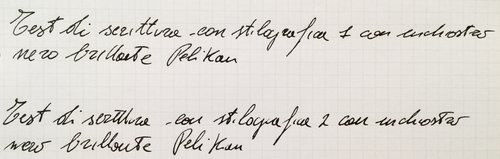 Test di scrittura con stilografica 1 con inchiostro
nero brillante Pelikan
Test di scrittura con stilografica 2 con inchiostro
nero brillante Pelikan